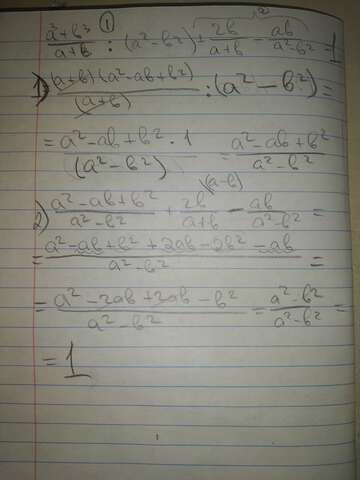 a³+b³/a+b ① : (a²-b²) + 2b/a+b - ab/a²-b² = 1
1) (a+b)(a²-ab+b²)/(a+b) : (a²-b²) =
= a²-ab+b² · 1/(a²-b²) = a²-ab+b²/a²-b²
(a-b)
2) a²-ab+b²/a²-b² + 2b/a+b - ab/a²-b² =
= a²-ab+b²+2ab-2b²-ab/a²-b² =
= a²-2ab+2ab-b²/a²-b² = a²-b²/a²-b² =
= 1